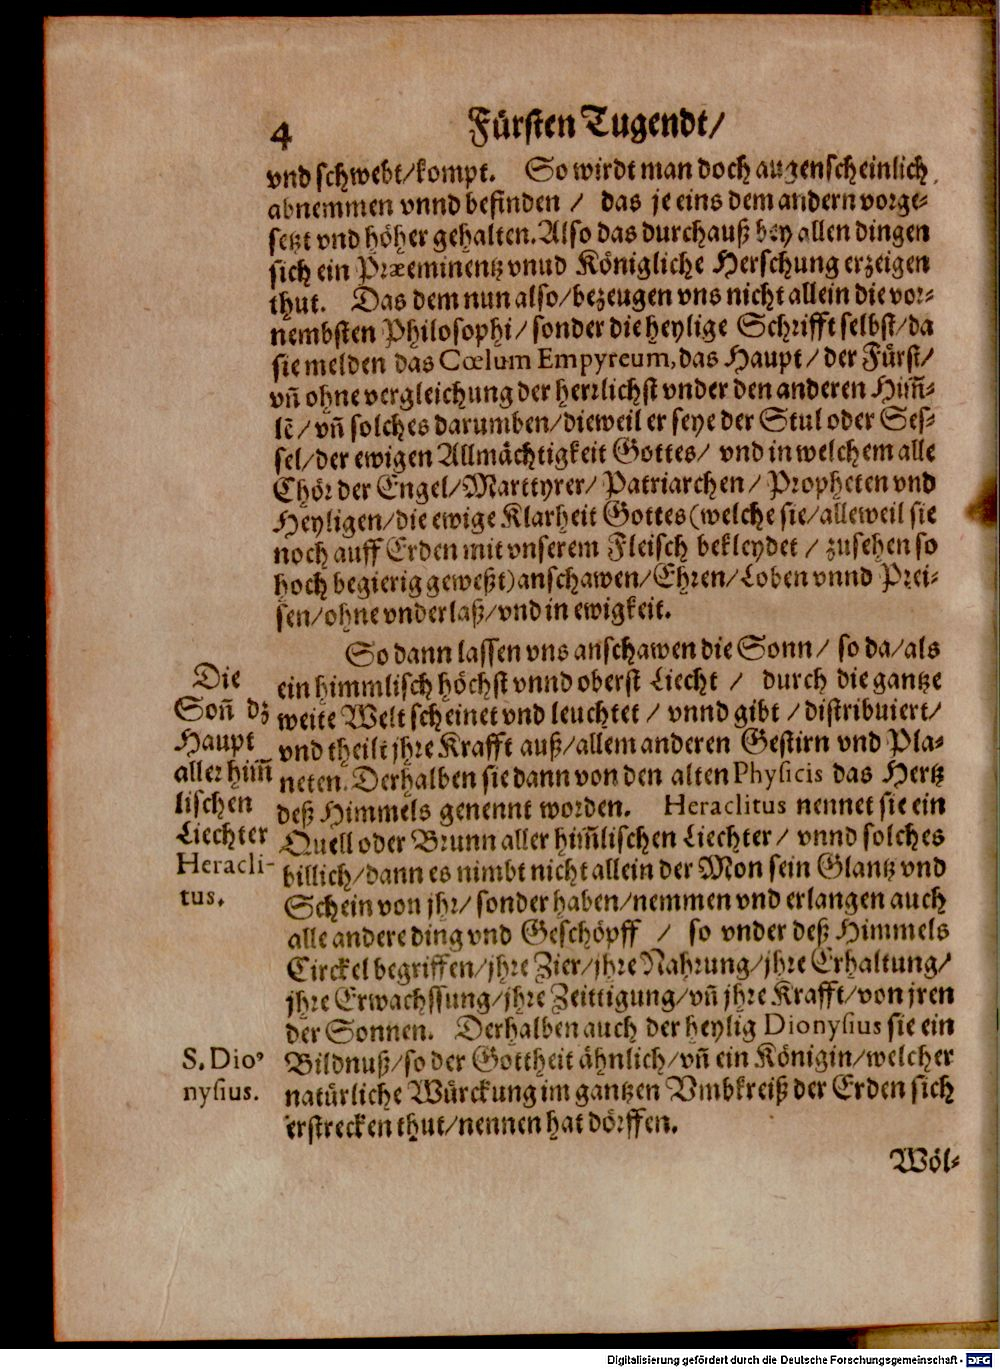 4 Fürsten Tugendt/
vnd schwebt/kompt. So wirdt man doch augenscheinlich
abnemmen vnnd befinden / das je eins dem andern vorge-
setzt vnd höher gehalten. Also das durchauß bey allen dingen
sich ein Præeminentz vnud Königliche Herschung erzeigen
thut. Das dem nun also/bezeugen vns nicht allein die vor-
nembsten Philosophi/sonder die heylige Schrifft selbst/da
sie melden das Cœlum Empyreum, das Haupt/der Fürst/
vñ ohne vergleichung der herrlichst vnder den anderen Him̃-
lẽ/vñ solches darumben/dieweil er seye der Stul oder Ses-
sel/der ewigen Allmächtigkeit Gottes/ vnd in welchem alle
Chör der Engel/Marttyrer/Patriarchen/Propheten vnd
Heyligen/die ewige Klarheit Gottes(welche sie/alleweil sie
noch auff Erden mit vnserem Fleisch bekleydet/zusehen so
hoch begierig geweßt)anschawen/Ehren/Loben vnnd Prei-
sen/ohne vnderlaß/vnd in ewigkeit.
So dann lassen vns anschawen die Sonn/ so da/als
ein himmlisch höchst vnnd oberst Liecht / durch die gantze
weite Welt scheinet vnd leuchtet / vnnd gibt/distribuiert/
vnd theilt jhre Krafft auß/allem anderen Gestirn vnd Pla-
neten. Derhalben sie dann von den alten Physicis das Hertz
deß Himmels genennt worden. Heraclitus nennet sie ein
Quell oder Brunn aller him̃lischen Liechter/ vnnd solches
billich/dann es nimbt nicht allein der Mon sein Glantz vnd
Schein von jhr/sonder haben/nemmen vnd erlangen auch
alle andere ding vnd Geschöpff / so vnder deß Himmels
Circkel begriffen/jhre Zier/jhre Nahrung/jhre Erhaltung/
jhre Erwachssung/jhre Zeittigung/vñ jhre Krafft/von jren
der Sonnen. Derhalben auch der heylig Dionysius sie ein
Bildnuß/so der Gottheit ähnlich/vñ ein Königin/welcher
natürliche Würckung im gantzen Vmbkreiß der Erden sich
erstrecken thut/nennen hat dörffen.
Die
Soñ dz
Haupt
aller him̃
lischen
Liechter
Heracli-
tus.
S. Dio-
nysius.
Wöl-
Digitalisierung gefördert durch die Deutsche Forschungsgemeinschaft - DFG